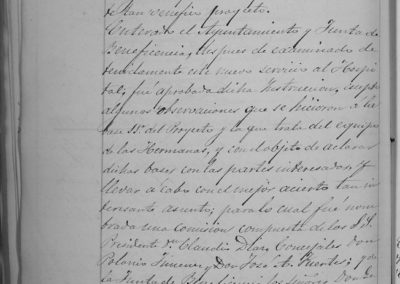 Enterado el Ayuntamiento y Junta de
Beneficencia, despues de examinado de
tenidamente este nuevo servicio al Hospi
tal, fué aprobada dicha Instruccion,
algunas observaciones que se hicieron á la
del Proyecto y la que trata del equipo
de las Hermanas, y con el objeto de aclarar
dichas bases con las partes interesadas y
llevar á cabo con el mejor acierto tan in
teresante asunto, para lo cual fué nom
brada una comision compuesta de los S.S.
Presidente Don Claudio Diaz, Concejales Don
Polonio Jimenez y Don José A. Fuertes; y de
la Junta de Beneficencia los señores Don